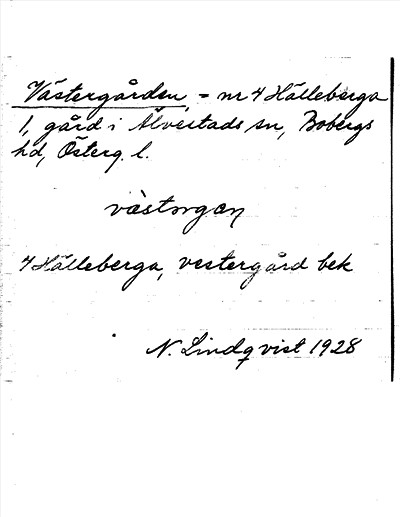 Västergården, = nr 4 Hälleberga
1, gård i Älvestads sn, Bobergs
hd, Österg. l.
västorgan
4 Hälleberga, vestergård bek
N. Lindqvist 1928